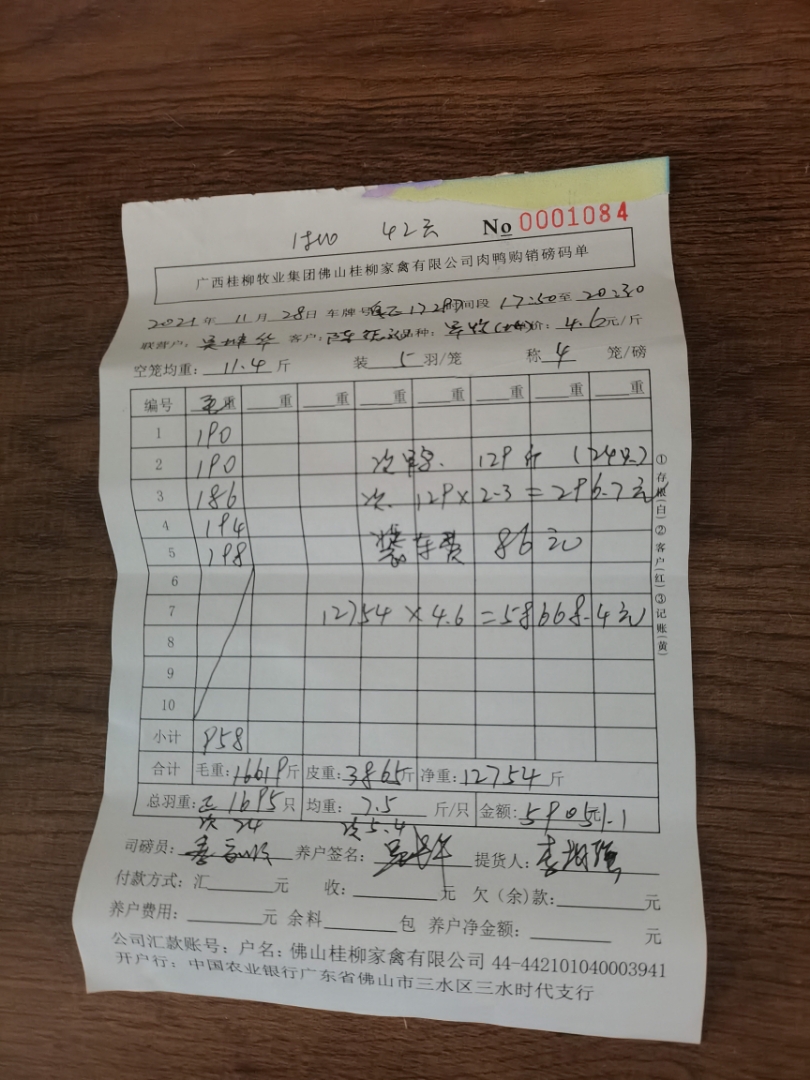 42天 No 0001084
广西桂柳牧业集团佛山桂柳家禽有限公司肉鸭购销磅码单
2021年 11月 28日 车牌号 1728 时间段 17:50至 20:30
联营户： 客户： 品种： 价：4.6元/斤
空笼均重：11.4斤 装 5 羽/笼 称 4 笼/磅
编号 毛重 重 重 重 重 重 重 重
1 190
2 190 次 129斤 (24只)
3 186 次 129×2.3=296.7元
4 194
5 198 装车费 86元
6
7 12754×4.6=58668.4元
8
9
10
小计 958
合计 毛重：16619斤 皮重：3865斤 净重：12754斤
总羽重：正1695只 均重：7.5斤/只 金额：59051.1元
次 24 次5.4
司磅员： 养户签名： 提货人：
付款方式：汇 元 收： 元 欠（余）款： 元
养户费用： 元 余料 包 养户净金额： 元
公司汇款账号：户名：佛山桂柳家禽有限公司 44-442101040003941
开户行：中国农业银行广东省佛山市三水区三水时代支行
①存根(白)②客户(红)③记账(黄)